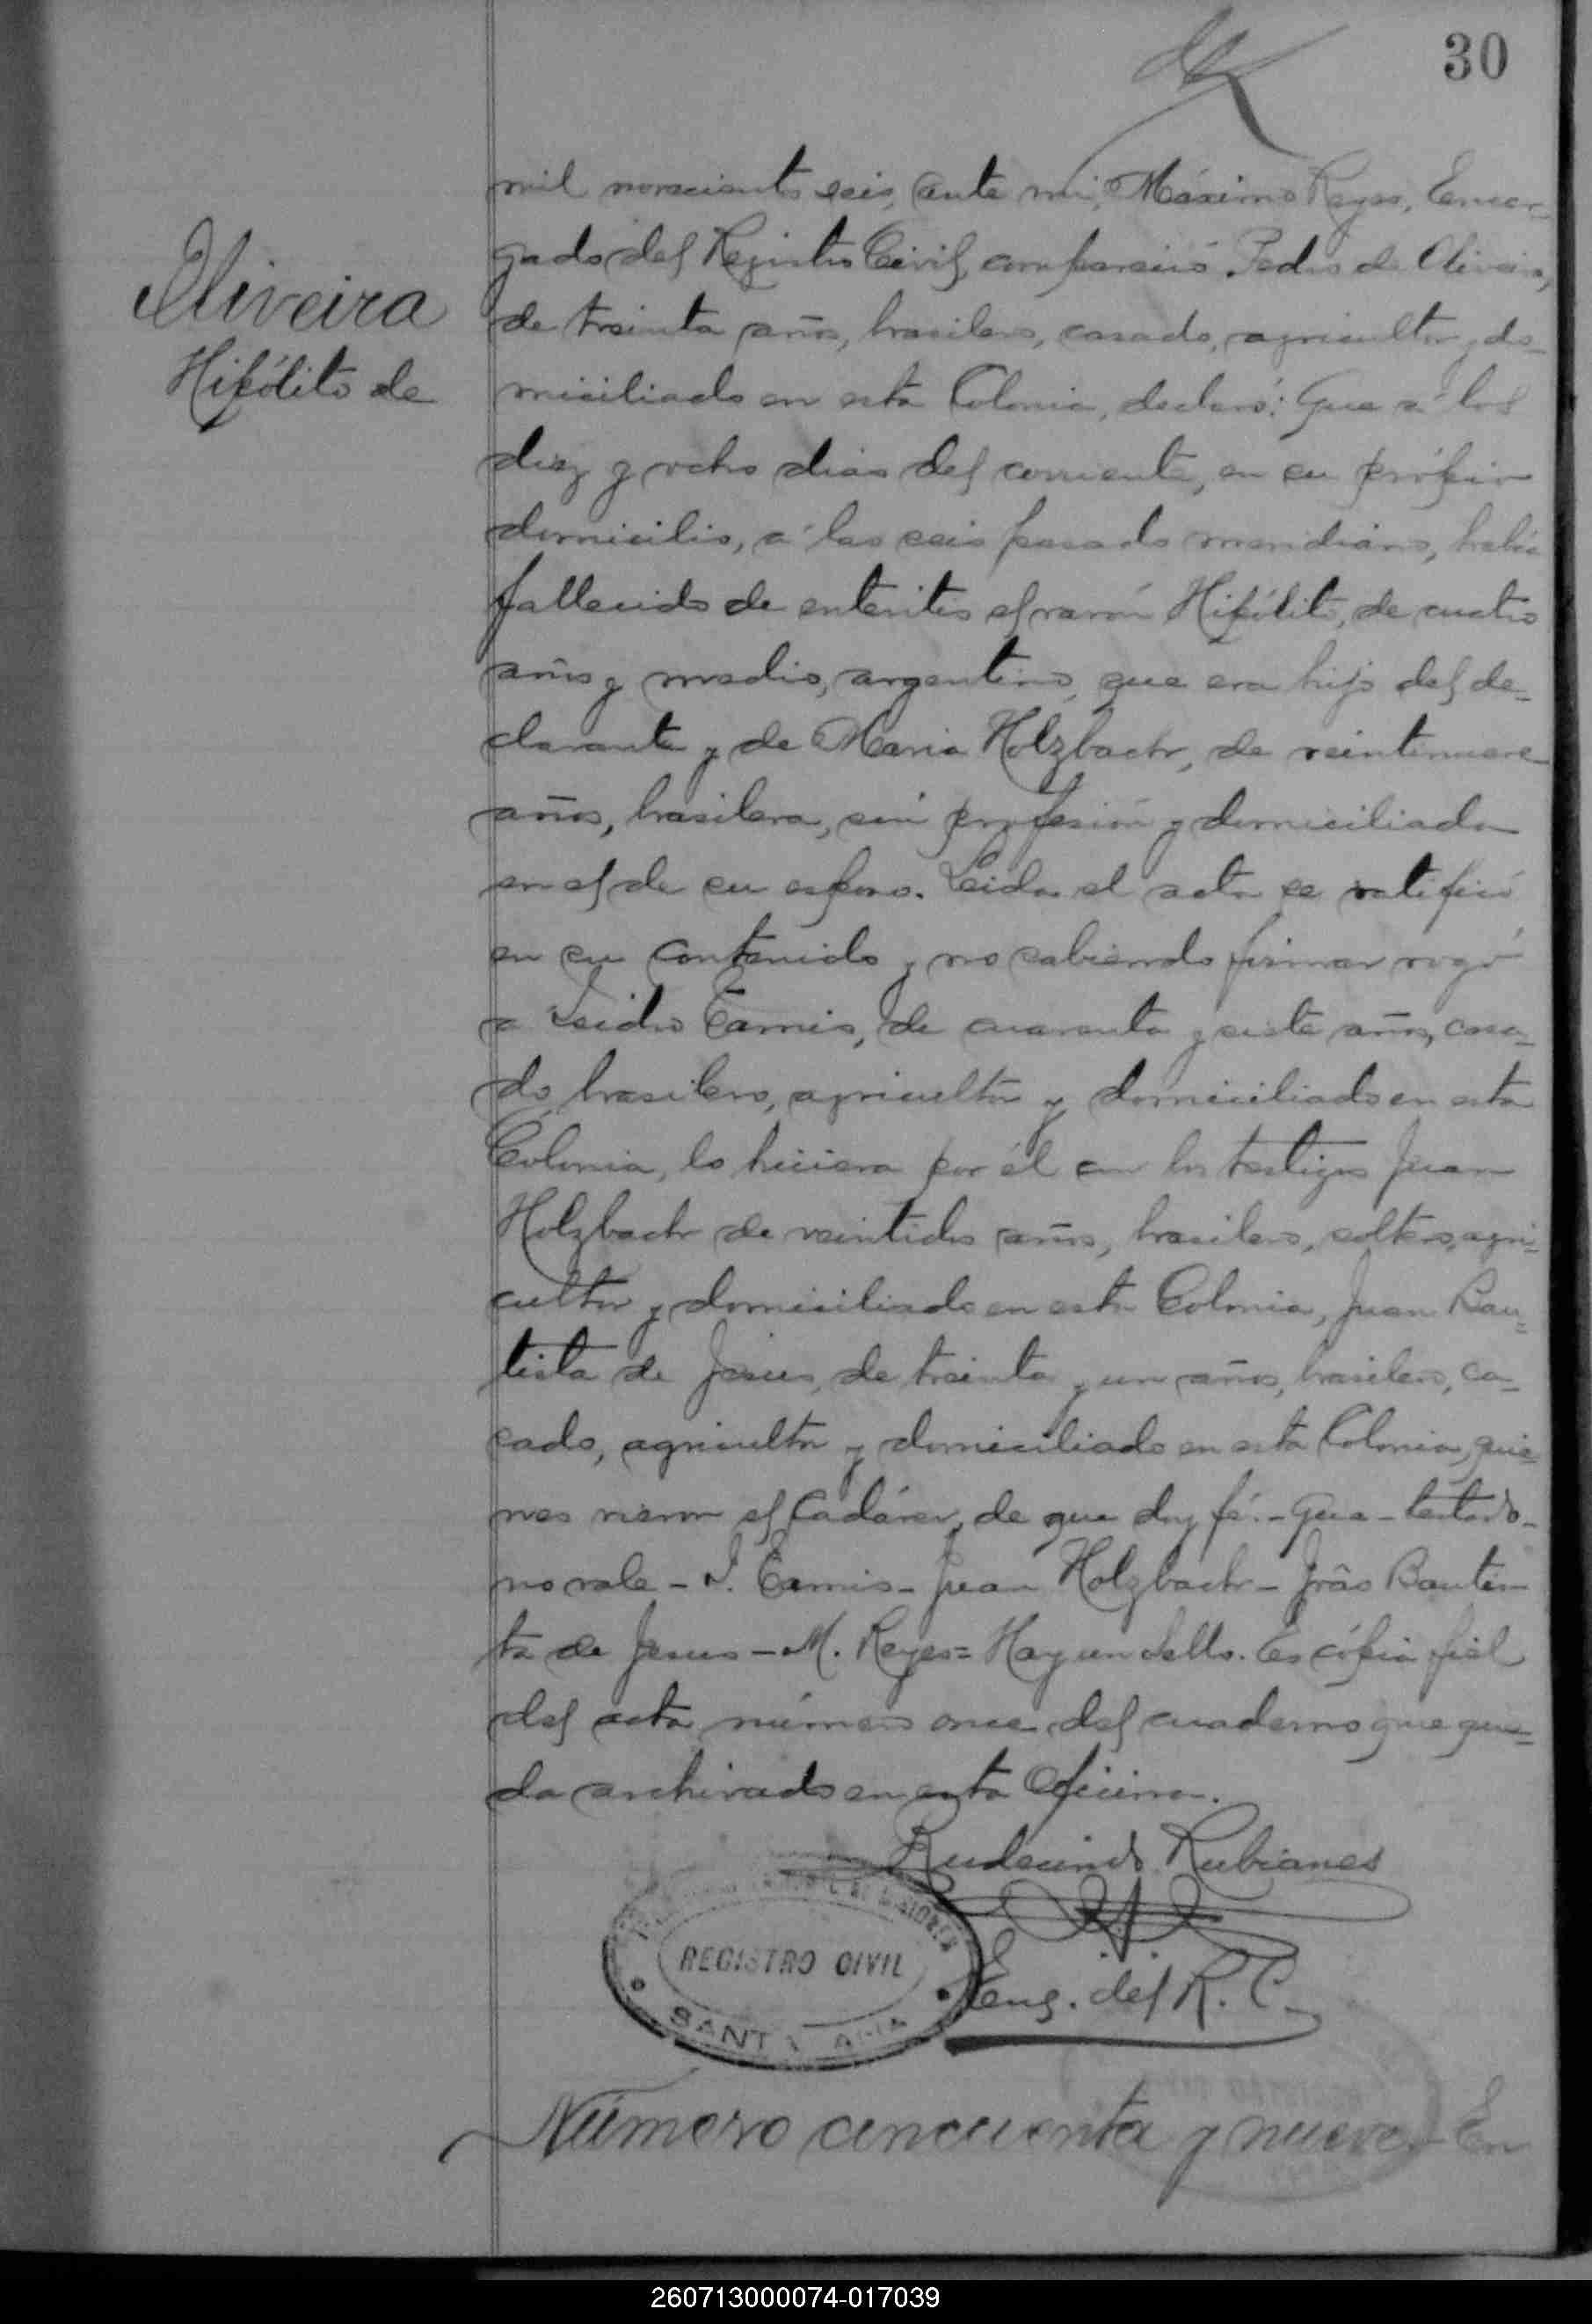 30
mil novecientos seis, ante mi, Máximo Reyes, Encar-
gado del Registro Civil, compareció Pedro de Oliveira,
Oliveira
Hipólito de
de treinta años, brasilero, casado, agricultor y do-
miciliado en esta Colonia, declaró: Que á los
diez y ocho dias del corriente, en su própio
domicilio, á las seis pasado meridiano, habia
fallecido de enteritis el varón Hipólito, de cuatro
años y medio, argentino, que era hijo del de-
clarante y de Maria Holzbach, de veintinueve
años, brasilera, sin profesión y domiciliada
en el de su esposo. Leida el acta se ratificó
en su contenido y no sabiendo firmar rogó
a Isidro Camis, de cuarenta y siete años, casa-
do, brasilero, agricultor y domiciliado en esta
Colonia, lo hiciera por él con los testigos Juan
Holzbach de veintidos años, brasilero, soltero, agri-
cultor y domiciliado en esta Colonia, Juan Bau-
tista de Jesus, de treinta y un años, brasilero, ca-
sado, agricultor y domiciliado en esta Colonia, quie-
nes vieron el Cadáver, de que doy fé.- Que - testado -
no vale - I. Camis - Juan Holzbach - Joâo Bautis-
ta de Jesus - M. Reyes = Hay un sello. Es cópia fiel
del acta número once del cuaderno que que-
da archivado en esta Oficina.
Rudecindo Rubianes
REGISTRO CIVIL
SANTA ANA
Enc. del R. C.
Número cincuenta y nueve - En
260713000074-017039